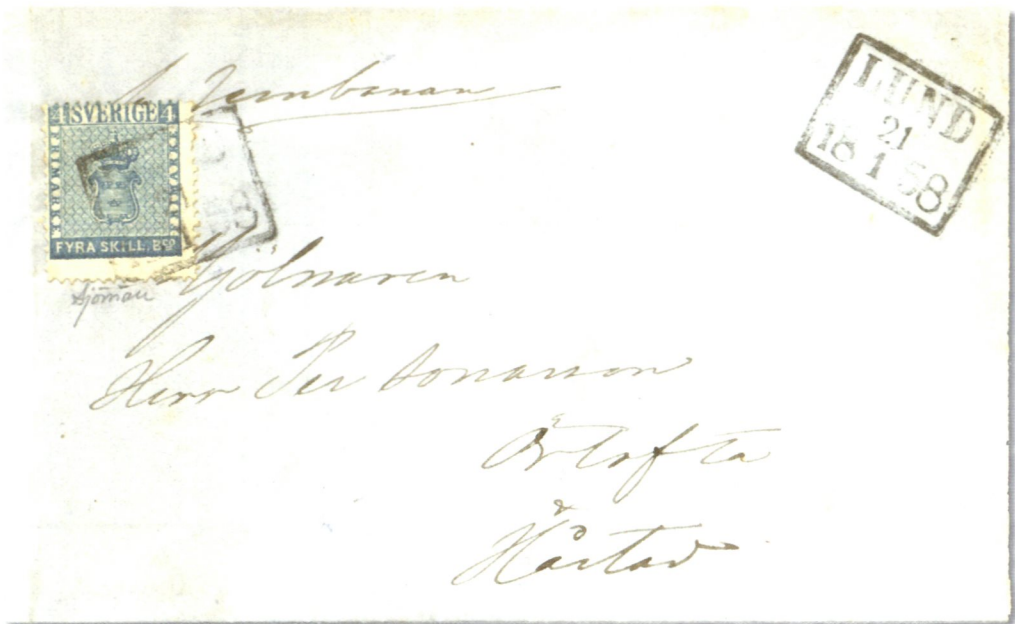 Jernbanan
SVERIGE
FRIMÄRKE
FYRA SKILL. BCO
LUND
21
18 1 58
Sjöman
Mjölnaren
Herr Per Jonasson
Örtofta
Hårstad